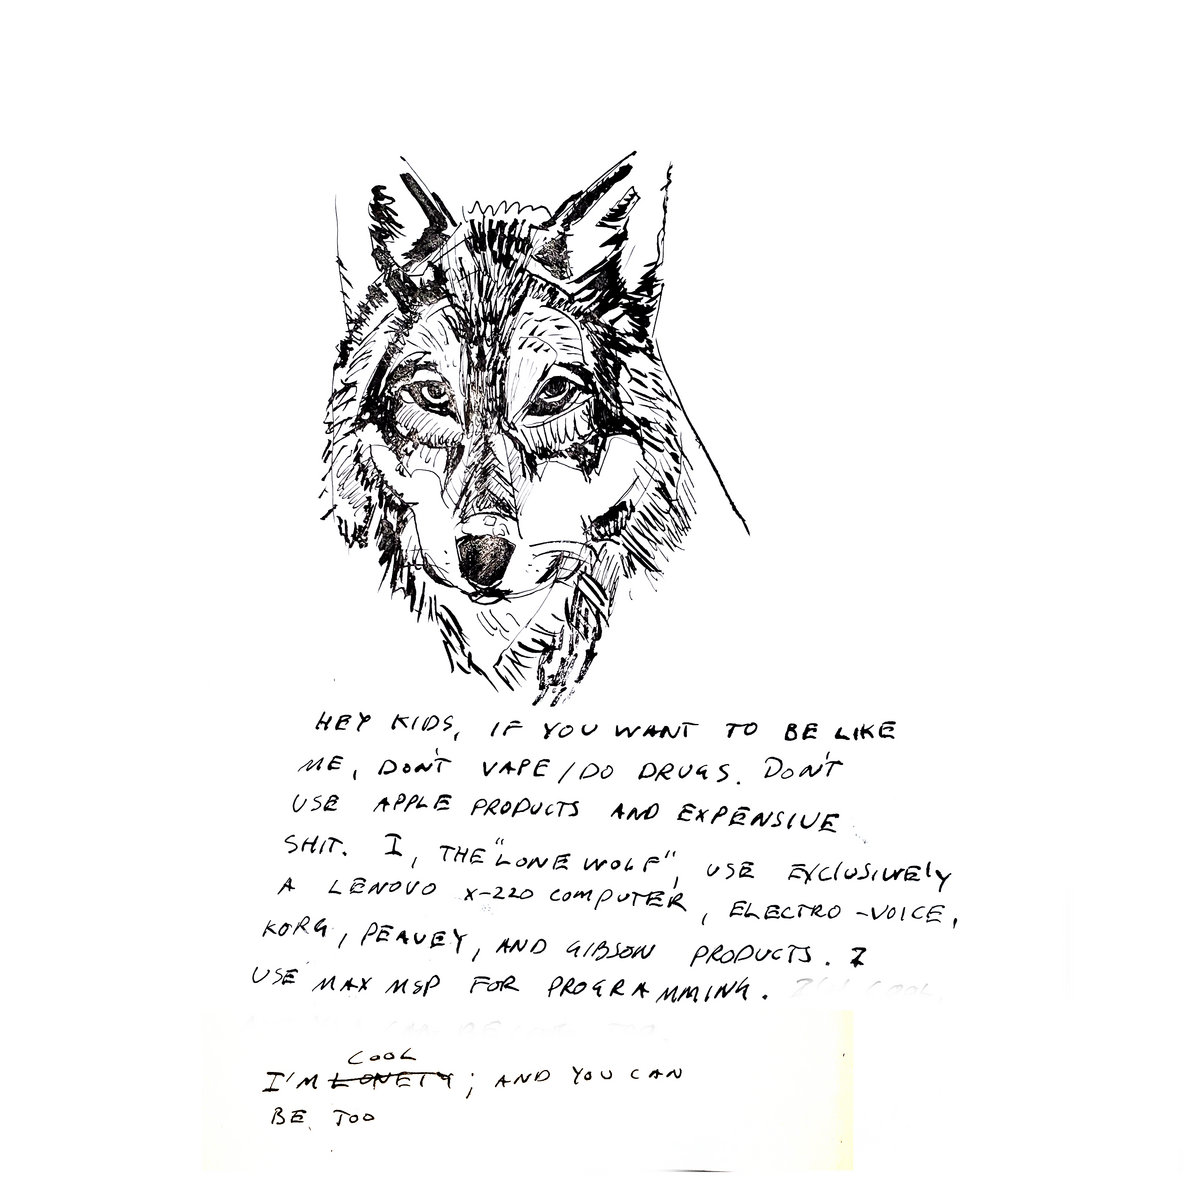 HEY KIDS, IF YOU WANT TO BE LIKE
ME, DON'T VAPE/DO DRUGS. DON'T
USE APPLE PRODUCTS AND EXPENSIVE
SHIT. I, THE "LONE WOLF", USE EXCLUSIVELY
A LENOVO X-220 COMPUTER, ELECTRO-VOICE,
KORG, PEAVEY, AND GIBSON PRODUCTS. I
USE MAX MSP FOR PROGRAMMING. I'M COOL,
CAN BE TOO
COOL
I'M LONELY; AND YOU CAN
BE TOO